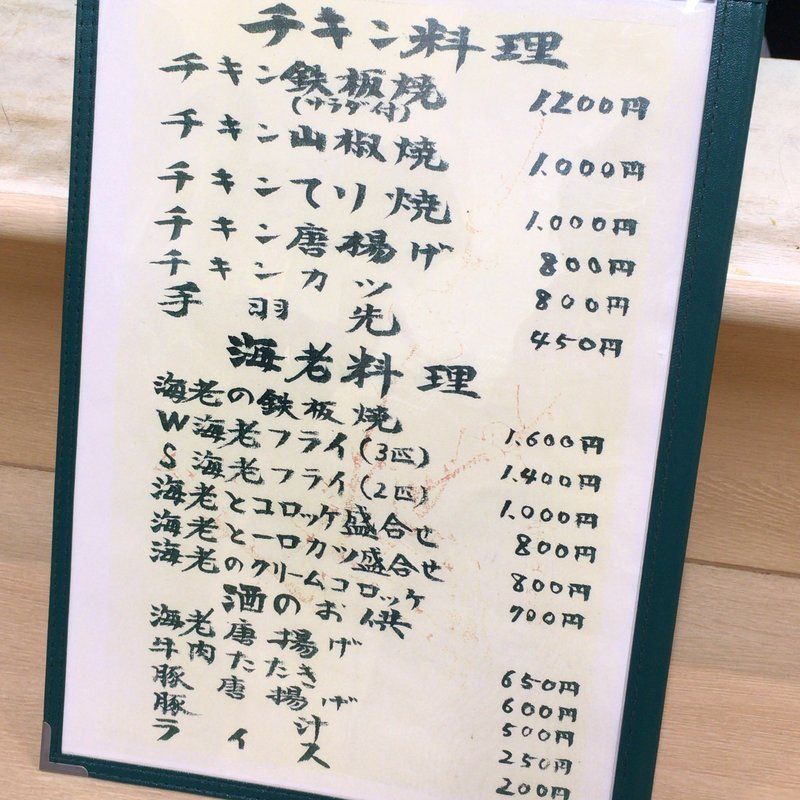 チキン料理
チキン鉄板焼 1.200円
(サラダ付)
チキン山椒焼 1.000円
チキンてり焼 1.000円
チキン唐揚げ 800円
チキンカツ 800円
手羽先 450円
海老料理
海老の鉄板焼 1.600円
W海老フライ(3匹) 1.400円
S海老フライ(2匹) 1.000円
海老とコロッケ盛合せ 800円
海老と一口カツ盛合せ 800円
海老のクリームコロッケ 700円
酒のお供
海老唐揚げ 650円
牛肉たたき 600円
豚唐揚げ 500円
豚汁 250円
ライス 200円